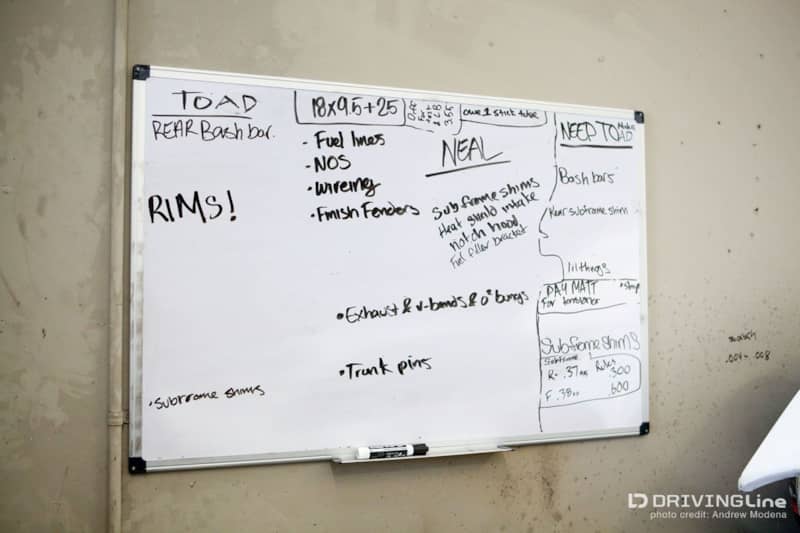 TOAD
REAR Bash bar.
RIMS!
•subframe shims
18x9.5+25
owe 1 stick tube
• Fuel lines
• NOS
• wireing
• Finish Fenders
NEAL
Subframe shims
Heat shield intake
notch hood
Fuel filler bracket
•Exhaust & v-bands & O² bungs
•Trunk pins
NEED TOAD
Make
Bash bars
Rear subframe shim
lil things
PAY MATT
For tensioner
Subframe shims
R- .37
.300
F .38
.600
.004- .008
DRIVINGLine
photo credit: Andrew Modena